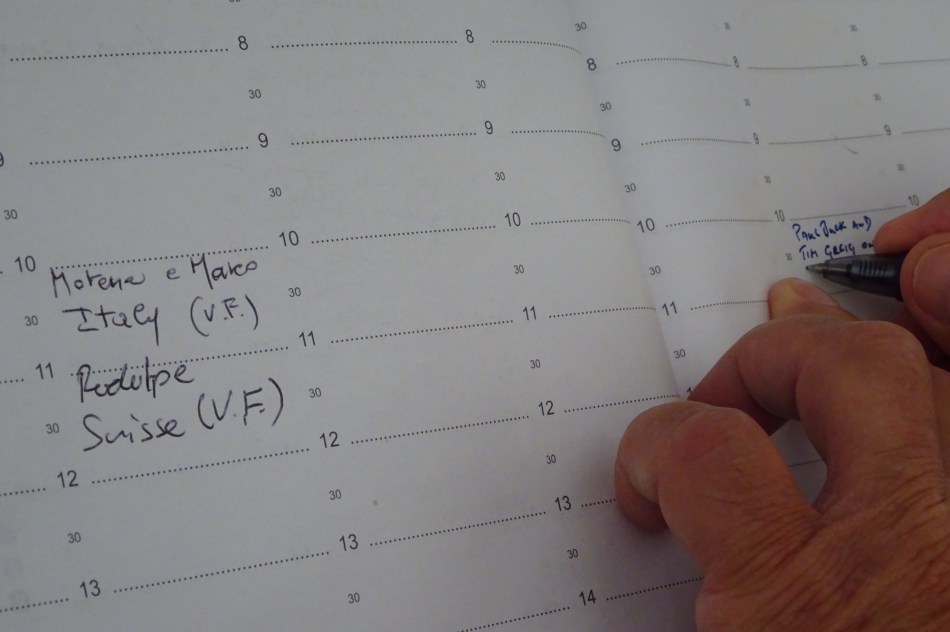 8 8 30
8 8 8
30 30 30 30 30
9 9 9 9 9
30 30 30 30 30 30
10 10 10 10 10 10
Morena e Marco
PAUL BUCK AND
TIM GREIG
30 Italy (V.F.) 30 30 30 30
11 11 11 11
Rodolpe
30 Suisse (V.F.) 30 30 30
12 12 12
30 30 30
13 13 13
30 30
14